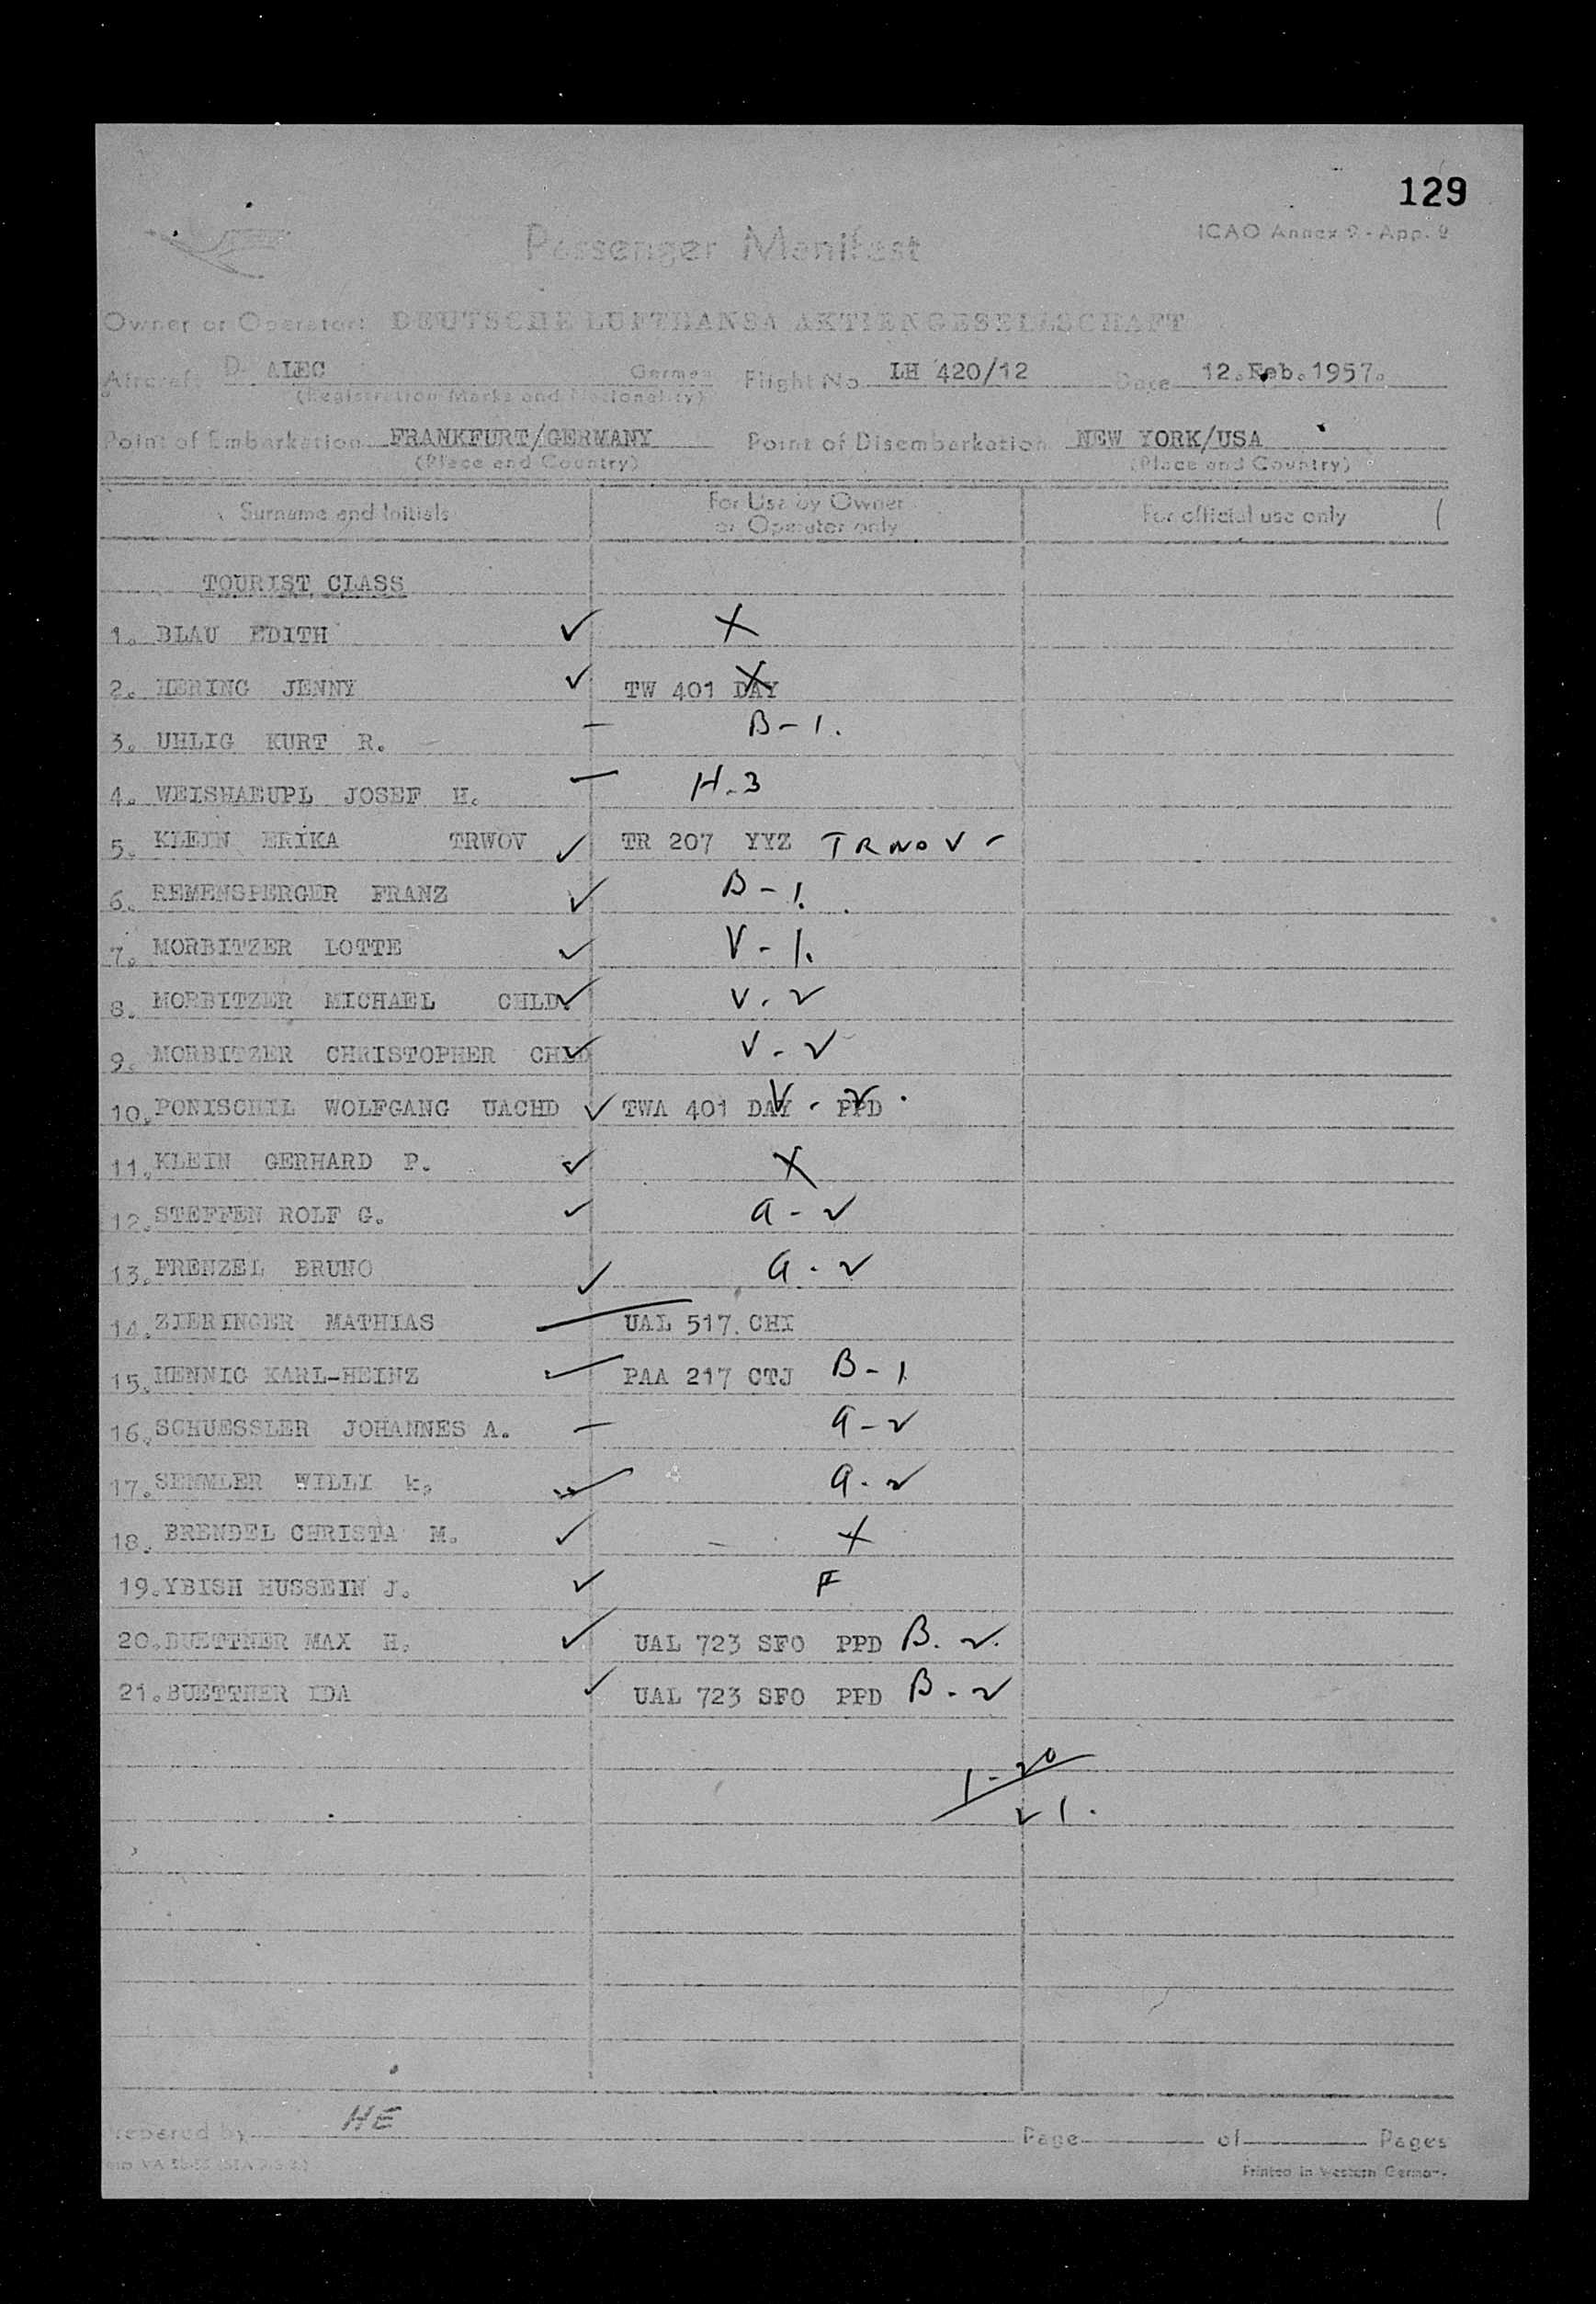 129
ICAO Annex 9 - App. 2
Passenger Manifest
Owner or Operator: DEUTSCHE LUFTHANSA AKTIENGESELLSCHAFT
Aircraft D- ALEC German Flight No. LH 420/12 Date 12.Feb.1957.
(Registration Marks and Nationality)
Point of Embarkation FRANKFURT/GERMANY Point of Disembarkation NEW YORK/USA
(Place and Country) (Place and Country)
Surname and Initials For Use by Owner or Operator only For official use only
TOURIST CLASS
1. BLAU EDITH ✓ X
2. HERING JENNY ✓ TW 401 DAY X
3. UHLIG KURT R. - B-1.
4. WEISHAEUPL JOSEF H. - H-3
5. KLEIN ERIKA TRWOV ✓ TR 207 YYZ TRWOV -
6. REMENSPERGER FRANZ ✓ B-1.
7. MORBITZER LOTTE ✓ V-1.
8. MORBITZER MICHAEL CHLD ✓ V-2
9. MORBITZER CHRISTOPHER CHLD ✓ V-2
10. PONISCHIL WOLFGANG UACHD ✓ TWA 401 DAY PPD V-2.
11. KLEIN GERHARD P. ✓ X
12. STEFFEN ROLF G. ✓ a-2
13. FRENZEL BRUNO ✓ a-2
14. ZIERINGER MATHIAS — UAL 517 CHI
15. HENNIG KARL-HEINZ ✓ PAA 217 CTJ B-1
16. SCHUESSLER JOHANNES A. - a-2
17. SEMMLER WILLI K. ✓ a-2
18. BRENDEL CHRISTA M. ✓ X
19. YBISH HUSSEIN J. ✓ F
20. BUETTNER MAX H. ✓ UAL 723 SFO PPD B-2.
21. BUETTNER IDA ✓ UAL 723 SFO PPD B-2
1-20
21.
Prepared by HE Page of Pages
Printed in Western Germany